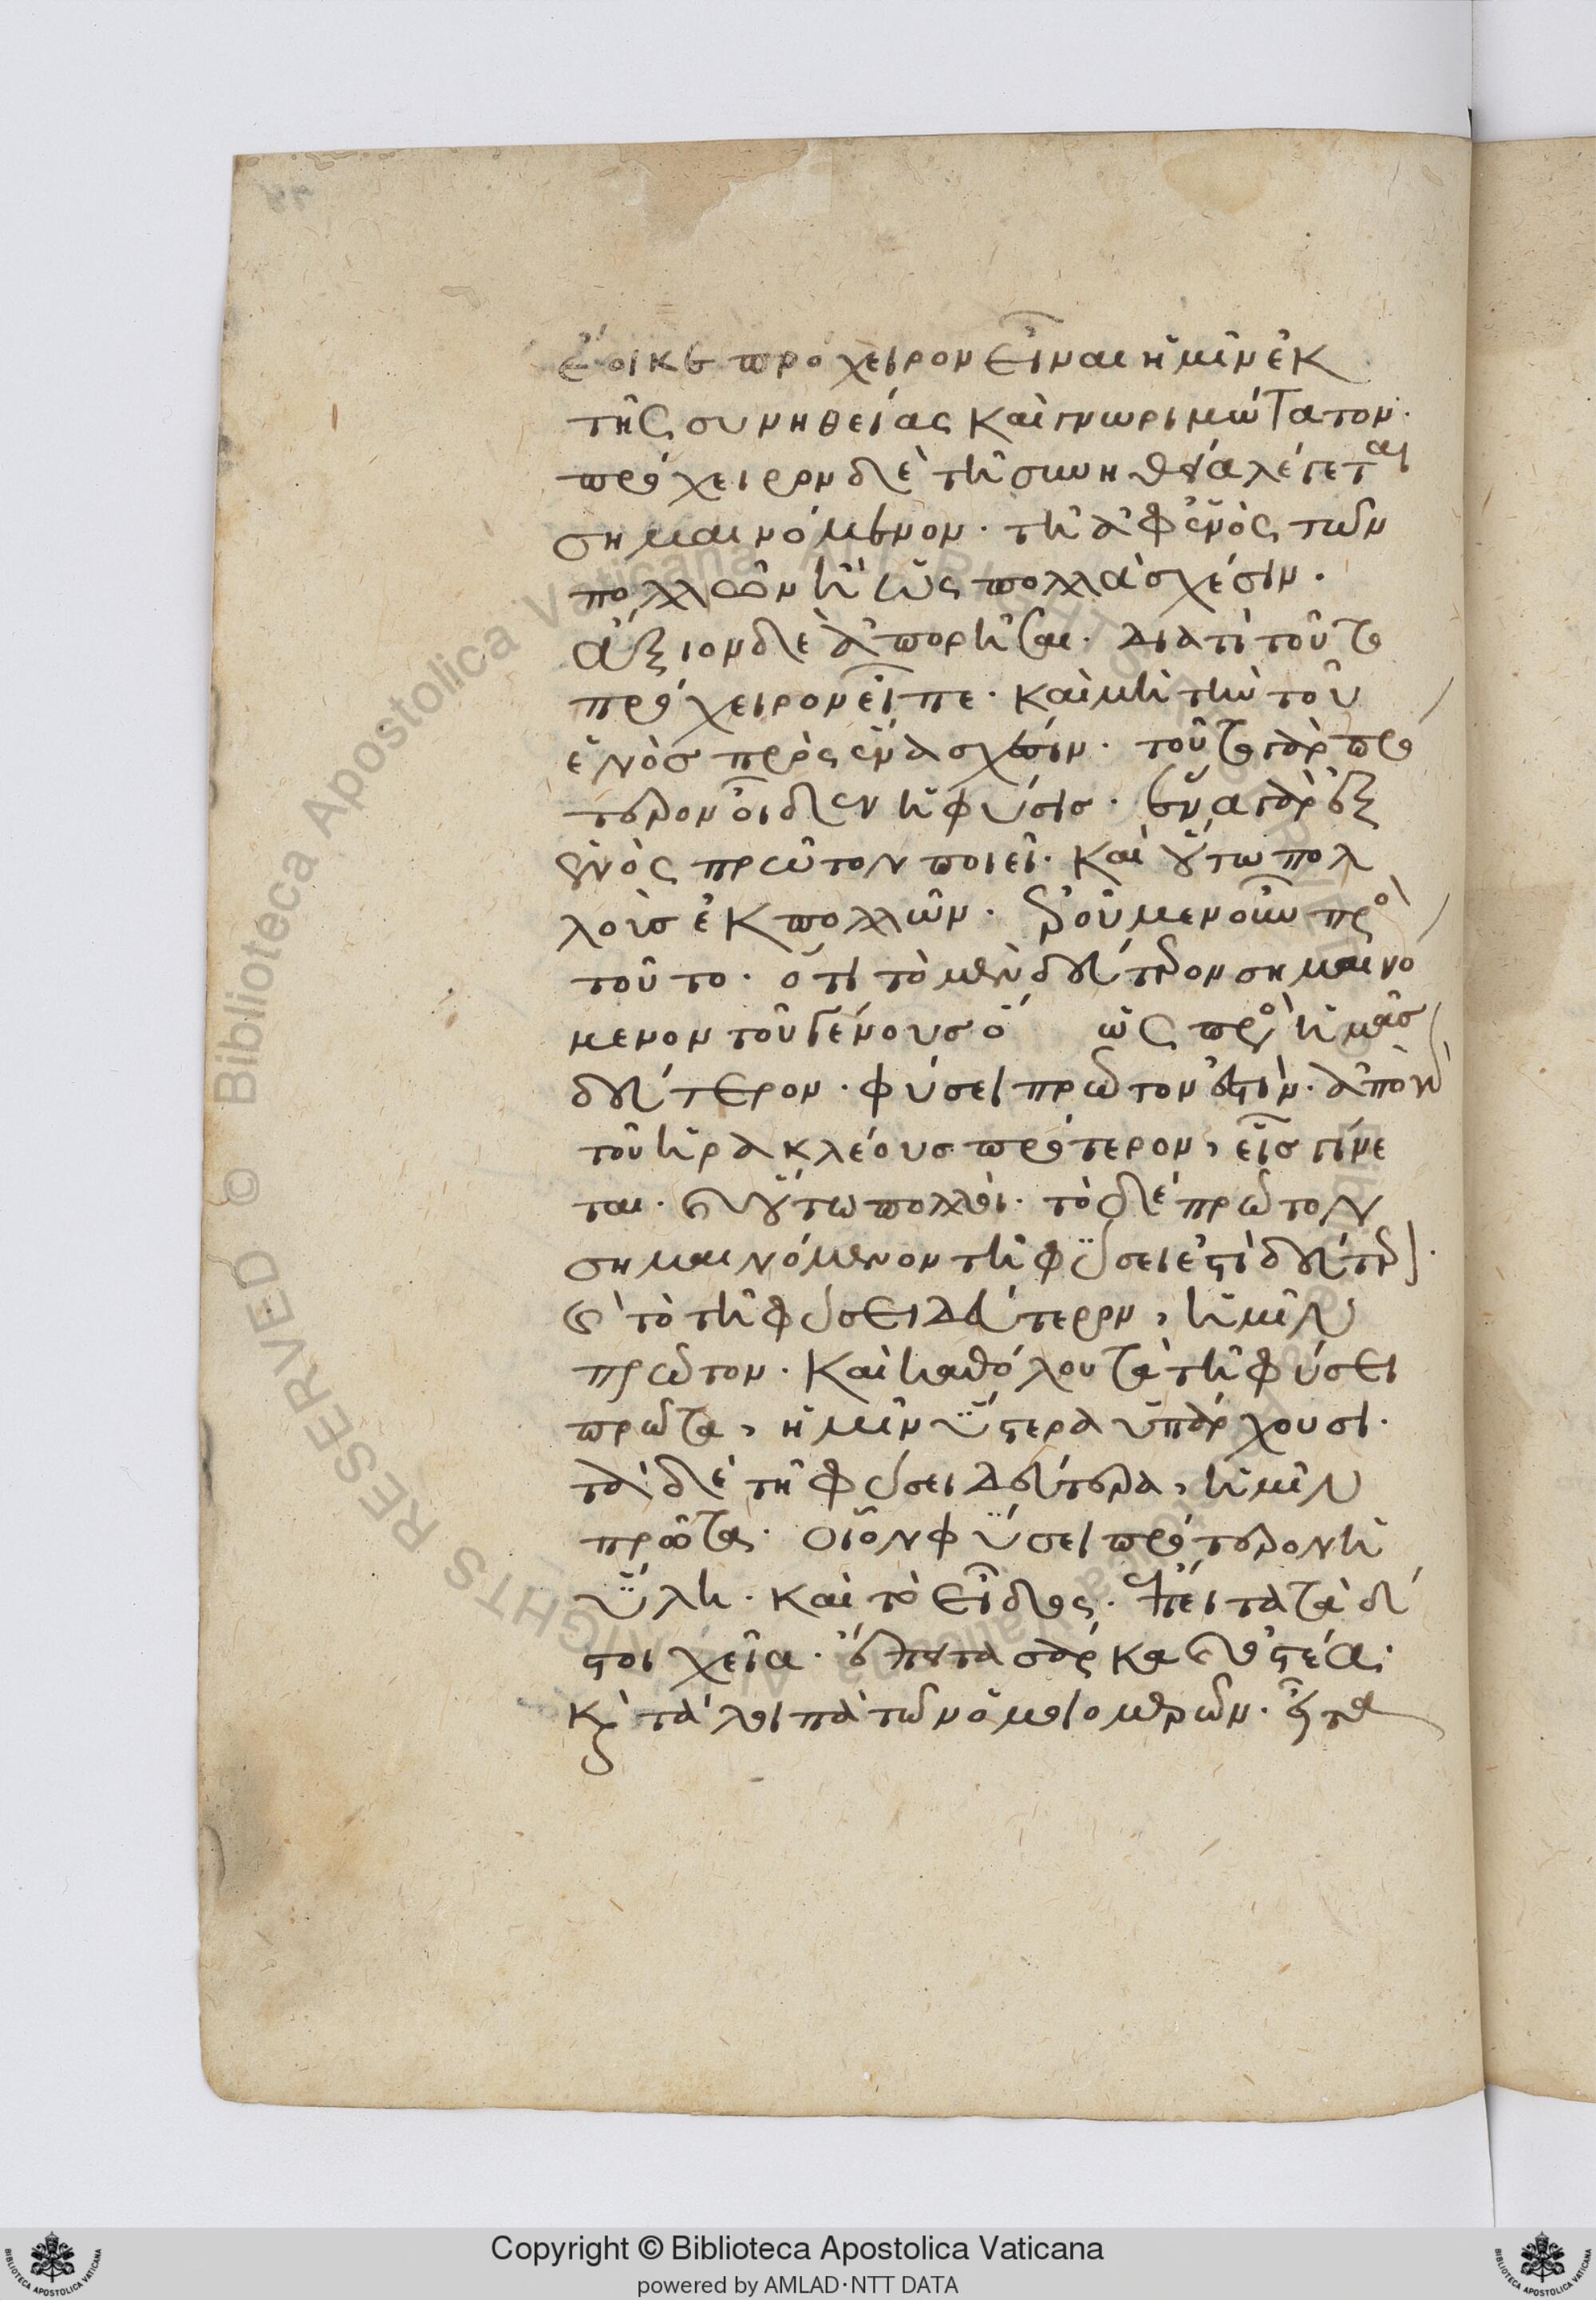 ἔοικε πρόχειρον εἶναι ἡμῖν ἐκ
τῆς συνηθείας καὶ γνωριμώτατον.
πρόχειρον δὲ τῆ συνηθεία λέγεται
σημαινόμενον. τῆ ἀφ' ἑνὸς τῶν
πολλῶν ἢ εἰς πολλὰ σχέσιν.
ἄξιον δὲ ἀπορῆσαι. διατί τοῦτο
πρόχειρον εἶπε. καὶ μὴ τὴν τοῦ
ἑνὸσ πρὸς ἕνα σχέσιν. τοῦτο γὰρ πρό
τερον οἶδεν ἡ φύσισ. ἕνα γὰρ ἐξ
ἑνὸς πρῶτον ποιεῖ. καὶ οὕτω πολ
λοὺσ ἐκ πολλῶν. ἐροῦμεν οὖν πρὸς
τοῦτο. ὅτι τὸ μὲν δεύτερον σημαινό
μενον τοῦ γένουσ ὃ ὡς πρὸς ἡμᾶσ
δεύτερον. φύσει πρῶτον ἐστὶν. ἀπὸ γὰρ
τοῦ ἡρακλέουσ πρότερον, εἷσ γίνε
ται. καὶ οὕτω πολλοί. τὸ δὲ πρῶτον
σημαινόμενον τῆ φύσει ἐστὶ δεύτερον.
καὶ τὸ τῆ φύσει δεύτερον, ἡμῖν
πρῶτον. καὶ καθόλου τὰ τῆ φύσει
πρῶτα, ἡμῖν ὕστερα ὑπάρχουσι.
τὰ δὲ τῆ φύσει δεύτερα, ἡμῖν
πρῶτα. οἷον φύσει πρότερον ἡ
ὕλη. καὶ τὸ εἶδος. ἔπειτα τὰ δ
στοιχεῖα. ἔπειτα σάρκα καὶ ὀστέα.
καὶ τὰ λοιπὰ τῶν ὁμοιομερῶν. εἶτα
Copyright © Biblioteca Apostolica Vaticana
powered by AMLAD·NTT DATA